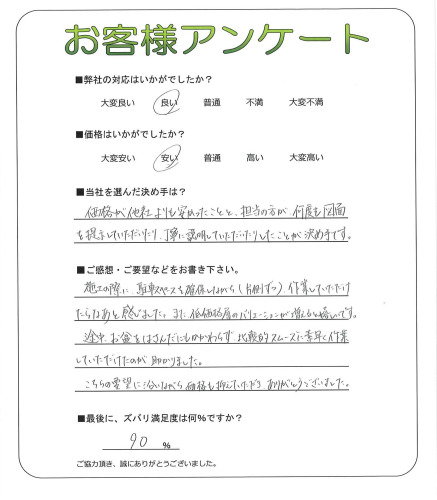 お客様アンケート
■弊社の対応はいかがでしたか？
大変良い 良い 普通 不満 大変不満
■価格はいかがでしたか？
大変安い 安い 普通 高い 大変高い
■当社を選んだ決め手は？
価格が他社よりも安かったことと、担当の方が、何度も図面
を提示していただいたり、丁寧に説明していただいたりしたことが決め手です。
■ご感想・ご要望などをお書き下さい。
施工の際に、駐車スペースを確保しながら（片側ずつ）作業していただけ
たらなあと感じました。また、低価格層のバリエーションが増えると嬉しいです。
途中、お盆をはさんだにもかかわらず、比較的スムーズに素早く作業
していただけたのが助かりました。
こちらの要望に沿いながら価格も抑えていただき、ありがとうございました。
■最後に、ズバリ満足度は何％ですか？
90 ％
ご協力頂き、誠にありがとうございました。